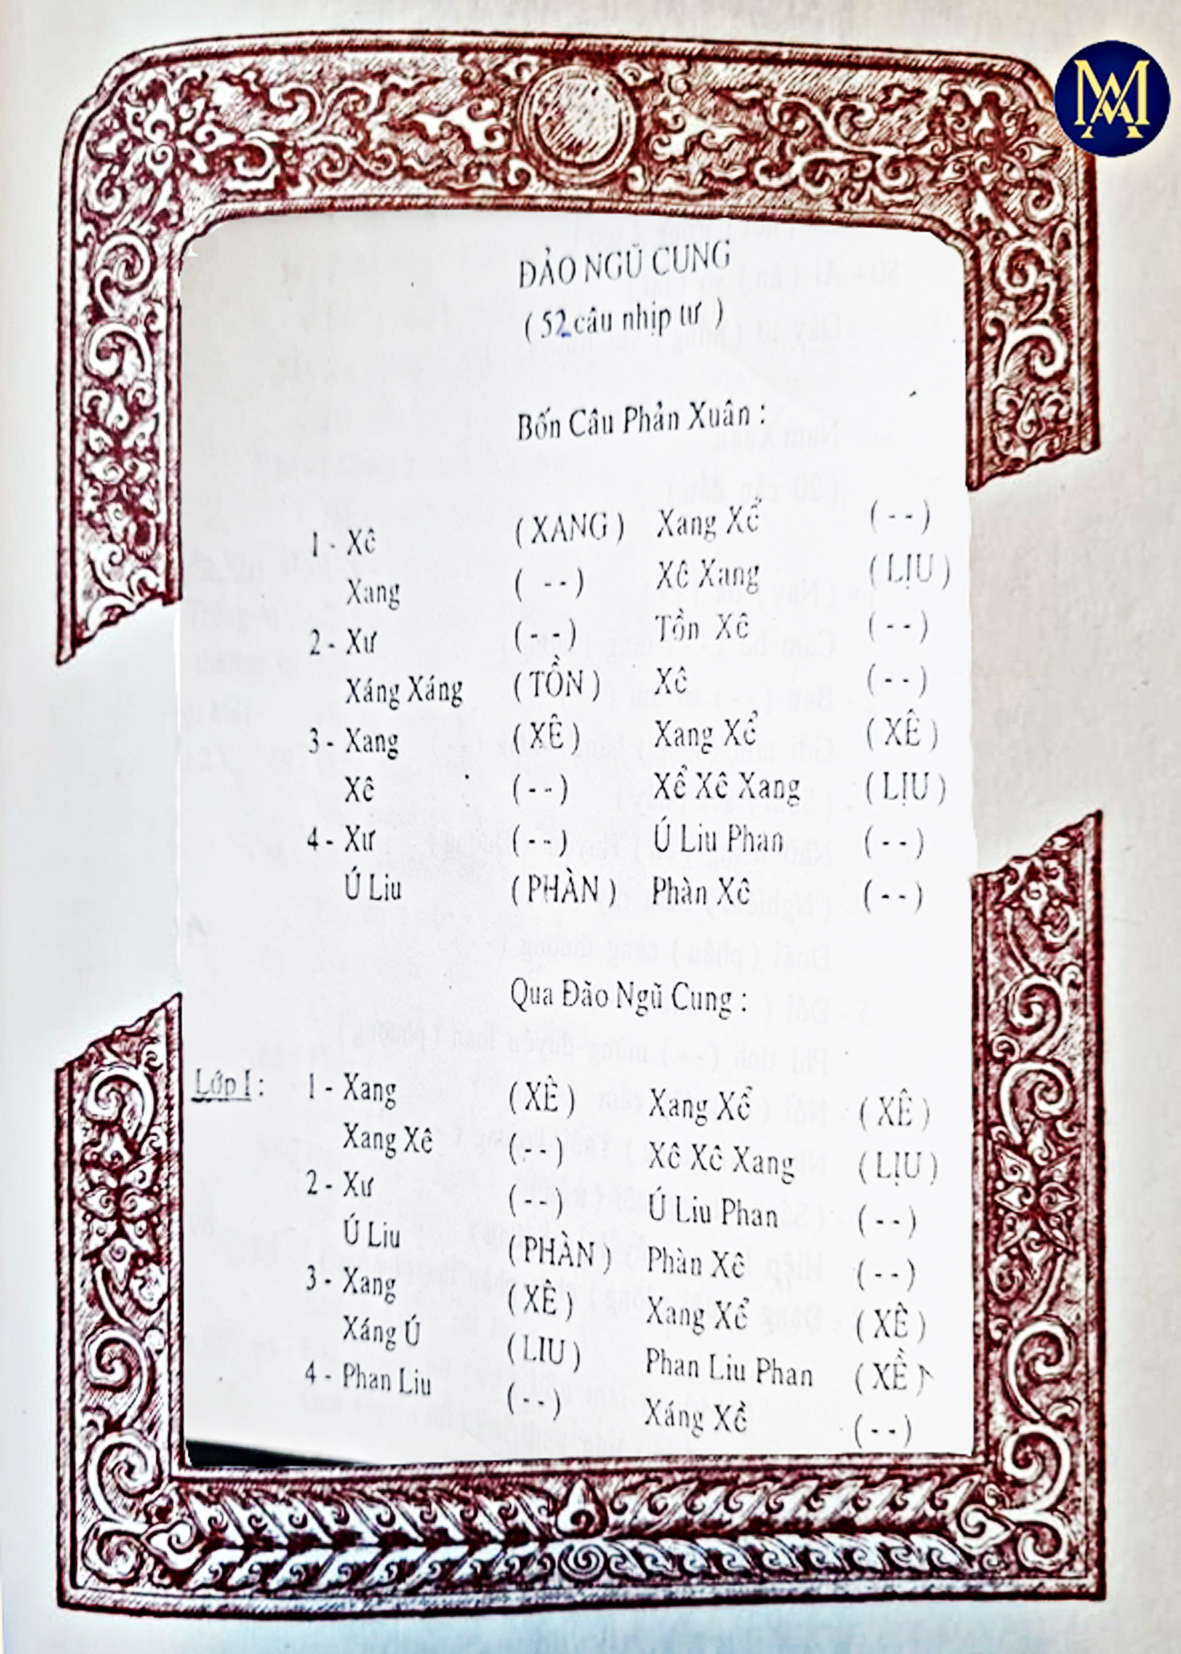 ĐẢO NGŨ CUNG
( 52 câu nhịp tư )
Bốn Câu Phản Xuân :
1 - Xê ( XANG ) Xang Xể ( - - )
Xang ( - - ) Xê Xang ( LỊU )
2 - Xư ( - - ) Tồn Xê ( - - )
Xáng Xáng ( TỒN ) Xê ( - - )
3 - Xang ( XÊ ) Xang Xể ( XÊ )
Xê ( - - ) Xể Xê Xang ( LỊU )
4 - Xư ( - - ) Ú Liu Phan ( - - )
Ú Liu ( PHÀN ) Phàn Xê ( - - )
Qua Đảo Ngũ Cung :
Lớp I : 1 - Xang ( XÊ ) Xang Xể ( XÊ )
Xang Xê ( - - ) Xê Xê Xang ( LỊU )
2 - Xư ( - - ) Ú Liu Phan ( - - )
Ú Liu ( PHÀN ) Phàn Xê ( - - )
3 - Xang ( XÊ ) Xang Xể ( XÊ )
Xáng Ú ( LIU ) Phan Liu Phan ( XỀ )
4 - Phan Liu ( - - ) Xáng Xề ( - - )